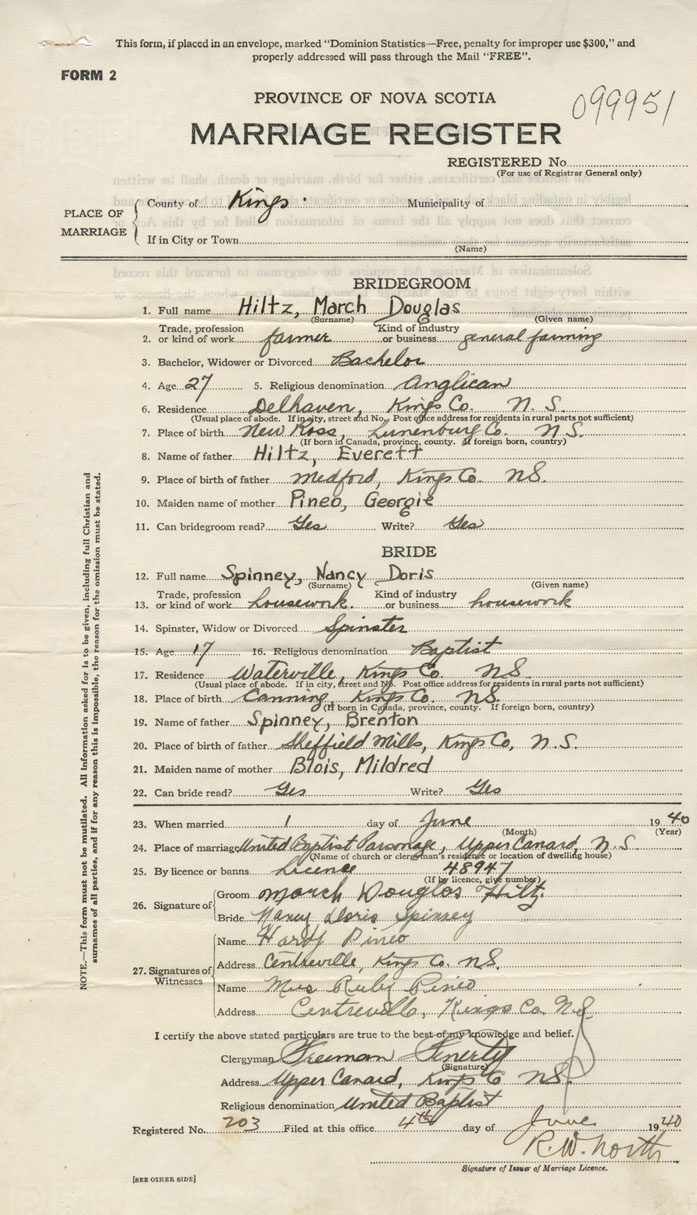 This form, if placed in an envelope, marked "Dominion Statistics—Free, penalty for improper use $300," and
properly addressed will pass through the Mail "FREE".
FORM 2
PROVINCE OF NOVA SCOTIA
099951
MARRIAGE REGISTER
REGISTERED No.
(For use of Registrar General only)
PLACE OF MARRIAGE
County of Kings. Municipality of
If in City or Town
(Name)
BRIDEGROOM
1. Full name Hiltz, March Douglas
(Surname) (Given name)
2. Trade, profession or kind of work farmer Kind of industry or business general farming
3. Bachelor, Widower or Divorced Bachelor
4. Age 27 5. Religious denomination Anglican
6. Residence Delhaven, Kings Co. N. S.
(Usual place of abode. If in city, street and No. Post office address for residents in rural parts not sufficient)
7. Place of birth New Ross, Lunenburg Co. N S.
(If born in Canada, province, county. If foreign born, country)
8. Name of father Hiltz, Everett
9. Place of birth of father Medford, Kings Co. NS.
10. Maiden name of mother Pineo, Georgie
11. Can bridegroom read? Yes Write? Yes
BRIDE
12. Full name Spinney, Nancy Doris
(Surname) (Given name)
13. Trade, profession or kind of work housework. Kind of industry or business housework
14. Spinster, Widow or Divorced Spinster
15. Age 17 16. Religious denomination Baptist
17. Residence Waterville, Kings Co. NS
(Usual place of abode. If in city, street and No. Post office address for residents in rural parts not sufficient)
18. Place of birth Canning Kings Co. NS.
(If born in Canada, province, county. If foreign born, country)
19. Name of father Spinney, Brenton
20. Place of birth of father Sheffield Mills, Kings Co, N.S.
21. Maiden name of mother Blois, Mildred
22. Can bride read? Yes Write? Yes
23. When married 1 day of June 1940
(Month) (Year)
24. Place of marriage United Baptist Parsonage, Upper Canard, N.S.
(Name of church or clergyman's residence or location of dwelling house)
25. By licence or banns Licence 48947
(If by licence, give number)
26. Signature of
Groom March Douglas Hiltz
Bride Nancy Doris Spinney
27. Signatures of Witnesses
Name Hardy Pineo
Address Centreville, Kings Co. NS.
Name Mrs Ruby Pineo
Address Centreville, Kings Co. N.S.
I certify the above stated particulars are true to the best of my knowledge and belief.
Clergyman Freeman Fenerty
(Signature)
Address Upper Canard, Kings Co NS.
Religious denomination United Baptist
Registered No. 203 Filed at this office 4th day of June 1940
R.W. North
Signature of Issuer of Marriage Licence.
[SEE OTHER SIDE]
NOTE.—This form must not be mutilated. All information asked for is to be given, including full Christian and
surnames of all parties, and if for any reason this is impossible, the reason for the omission must be stated.